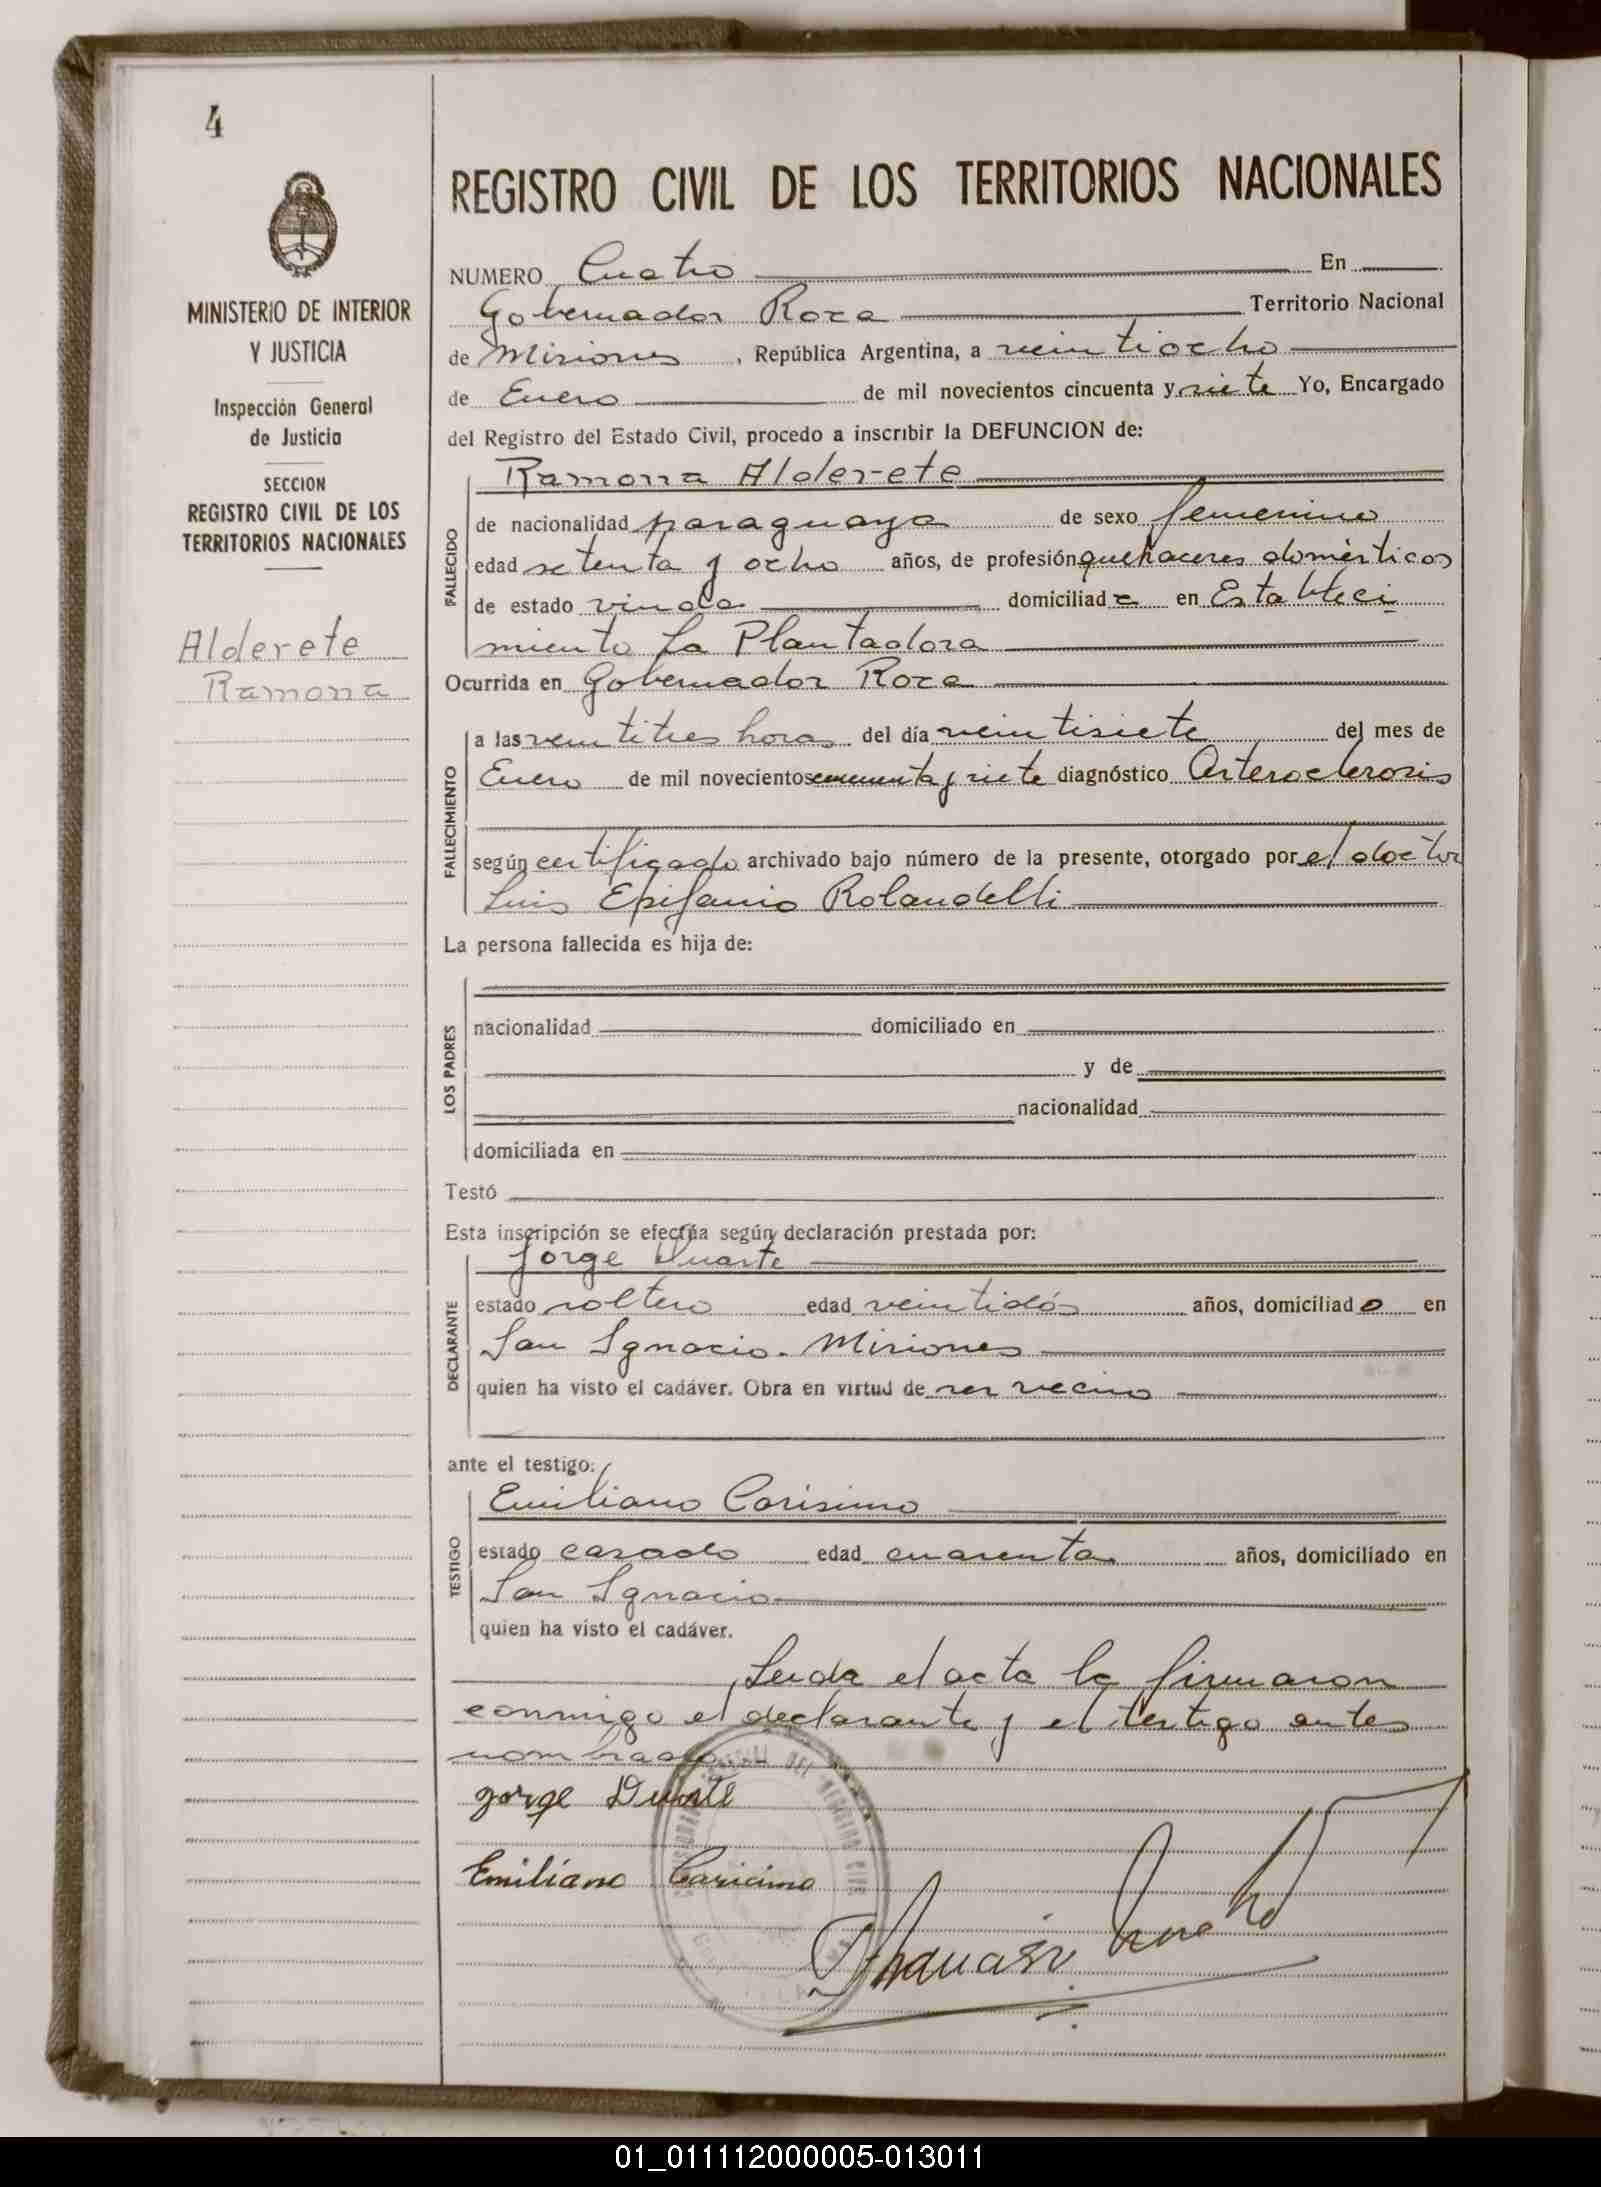 4
MINISTERIO DE INTERIOR
Y JUSTICIA
Inspección General
de Justicia
SECCION
REGISTRO CIVIL DE LOS
TERRITORIOS NACIONALES
Alderete
Ramona
REGISTRO CIVIL DE LOS TERRITORIOS NACIONALES
NUMERO Cuatro En
Gobernador Roca Territorio Nacional
de Misiones, República Argentina, a veintiocho
de Enero de mil novecientos cincuenta y siete Yo, Encargado
del Registro del Estado Civil, procedo a inscribir la DEFUNCION de:
FALLECIDO
Ramona Alderete
de nacionalidad paraguaya de sexo femenino
edad setenta y ocho años, de profesión quehaceres domésticos
de estado viuda domiciliada en Estableci
miento La Plantadora
Ocurrida en Gobernador Roca
FALLECIMIENTO
a las veintitres horas del día veintisiete del mes de
Enero de mil novecientos cincuenta y siete diagnóstico Arterosclerosis
según certificado archivado bajo número de la presente, otorgado por el doctor
Luis Epifanio Rolandelli
La persona fallecida es hija de:
LOS PADRES
nacionalidad domiciliado en
y de
nacionalidad
domiciliada en
Testó
Esta inscripción se efectúa según declaración prestada por:
DECLARANTE
Jorge Duarte
estado soltero edad veintidós años, domiciliado en
San Ignacio. Misiones
quien ha visto el cadáver. Obra en virtud de ser vecino
ante el testigo:
TESTIGO
Emiliano Carisimo
estado casado edad cuarenta años, domiciliado en
San Ignacio
quien ha visto el cadáver.
Leida el acta la firmaron
conmigo el declarante y el testigo antes
nombrado.
Jorge Duarte
Emiliano Caricimo
01_011112000005-013011